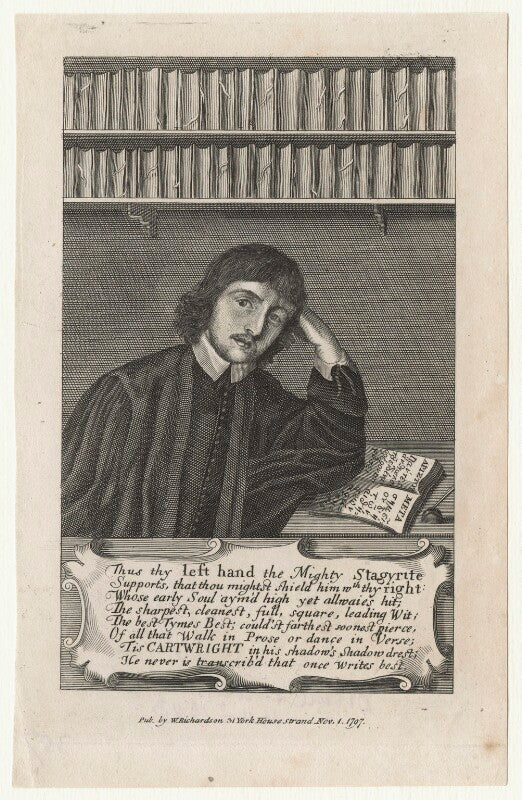 ARIS:
META
Thus thy left hand the Mighty Stagyrite
Supports, that thou might'st shield him wth thy right:
Whose early Soul aym'd high yet allwaies hit;
The sharpest, cleanest, full, square, leading Wit;
The best Tymes Best; could'st farthest soonest pierce,
Of all that Walk in Prose or dance in Verse;
Tis CARTWRIGHT in his shadow's shadow drest;
He never is transcrib'd that once writes best.
Pub. by W. Richardson York House Strand Nov. 1. 1797.